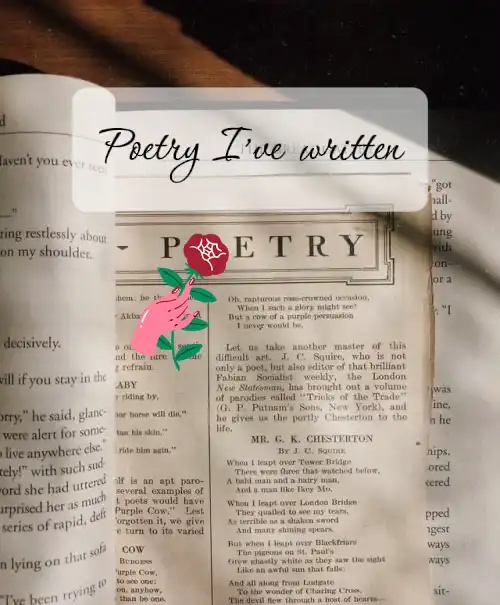 Poetry I've written
POETRY
Oh, rapturous rose-crowned occasion,
When I such a glory might see!
But a cow of a purple persuasion
I never would be.
Let us take another master of this
difficult art. J. C. Squire, who is not
only a poet, but also editor of that brilliant
Fabian Socialist weekly, the London
New Statesman, has brought out a volume
of parodies called "Tricks of the Trade"
(G. P. Putnam's Sons, New York), and
he gives us the portly Chesterton to the
life.
MR. G. K. CHESTERTON
By J. C. Squire
When I leapt over Tower Bridge
There were three that watched below,
A bald man and a hairy man,
And a man like Ikey Mo.
When I leapt over London Bridge
They quailed to see my tears,
As terrible as a shaken sword
And many shining spears.
But when I leapt over Blackfriars
The pigeons on St. Paul's
Grew ghastly white as they saw the sight
Like an awful sun that falls;
And all along from Ludgate
To the wonder of Charing Cross,
The devil flew through a host of hearts—
LABY
riding by,
or horse will die."
his skin."
ride him again."
is an apt paro-
several examples of
poets would have
Purple Cow," Lest
forgotten it, we give
turn to its varied
COW
Burgess
Purple Cow,
to see one;
anyhow,
than be one.
Haven't you ever
ring restlessly about
on my shoulder.
decisively.
will if you stay in the
he said, glanc-
were alert for some-
live anywhere else."
with such sud-
word she had uttered
surprised her as much
series of rapid, deft
lying on that sofa
"I've been trying to
"got
by
or a
"I
was
he
ways
ways
sit-